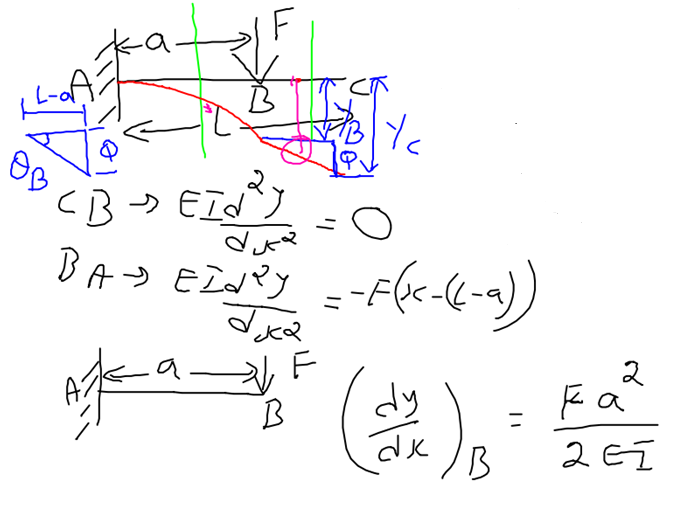 a F
A B C
L-a L y_B y_c
θ_B Φ Φ
CB → EI d²y/dx² = 0
BA → EI d²y/dx² = -F(x-(L-a))
a F
A B
(dy/dx)_B = Fa²/2EI